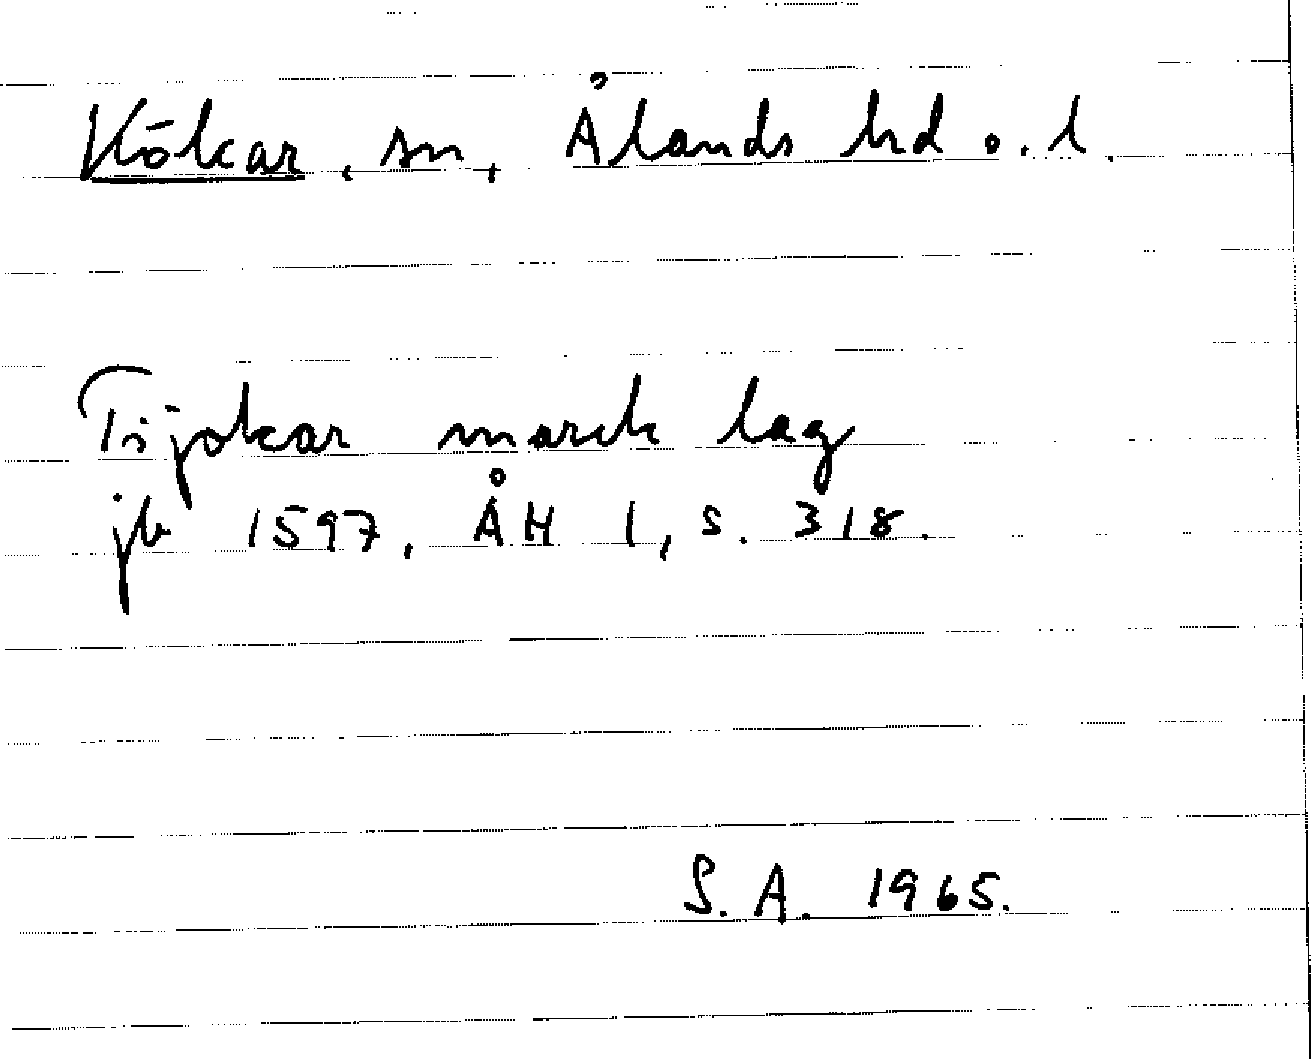 Kökar, sn, Ålands hd o. l.
Tijokar marck lag
jb 1597, ÅH 1, s. 318.
S. A. 1965.